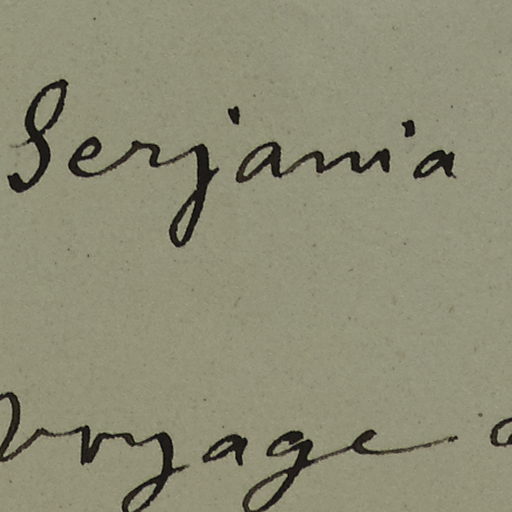 Serjania
Voyage